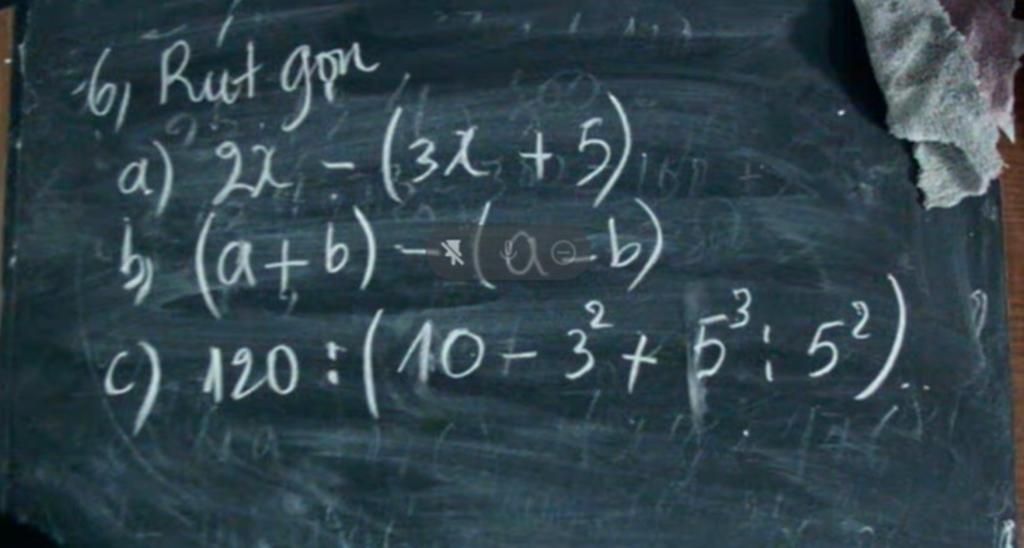 6, Rut gọn
a) 2x - (3x + 5)
b, (a + b) - (a - b)
c) 120 : (10 - 3² + 5³ : 5²)